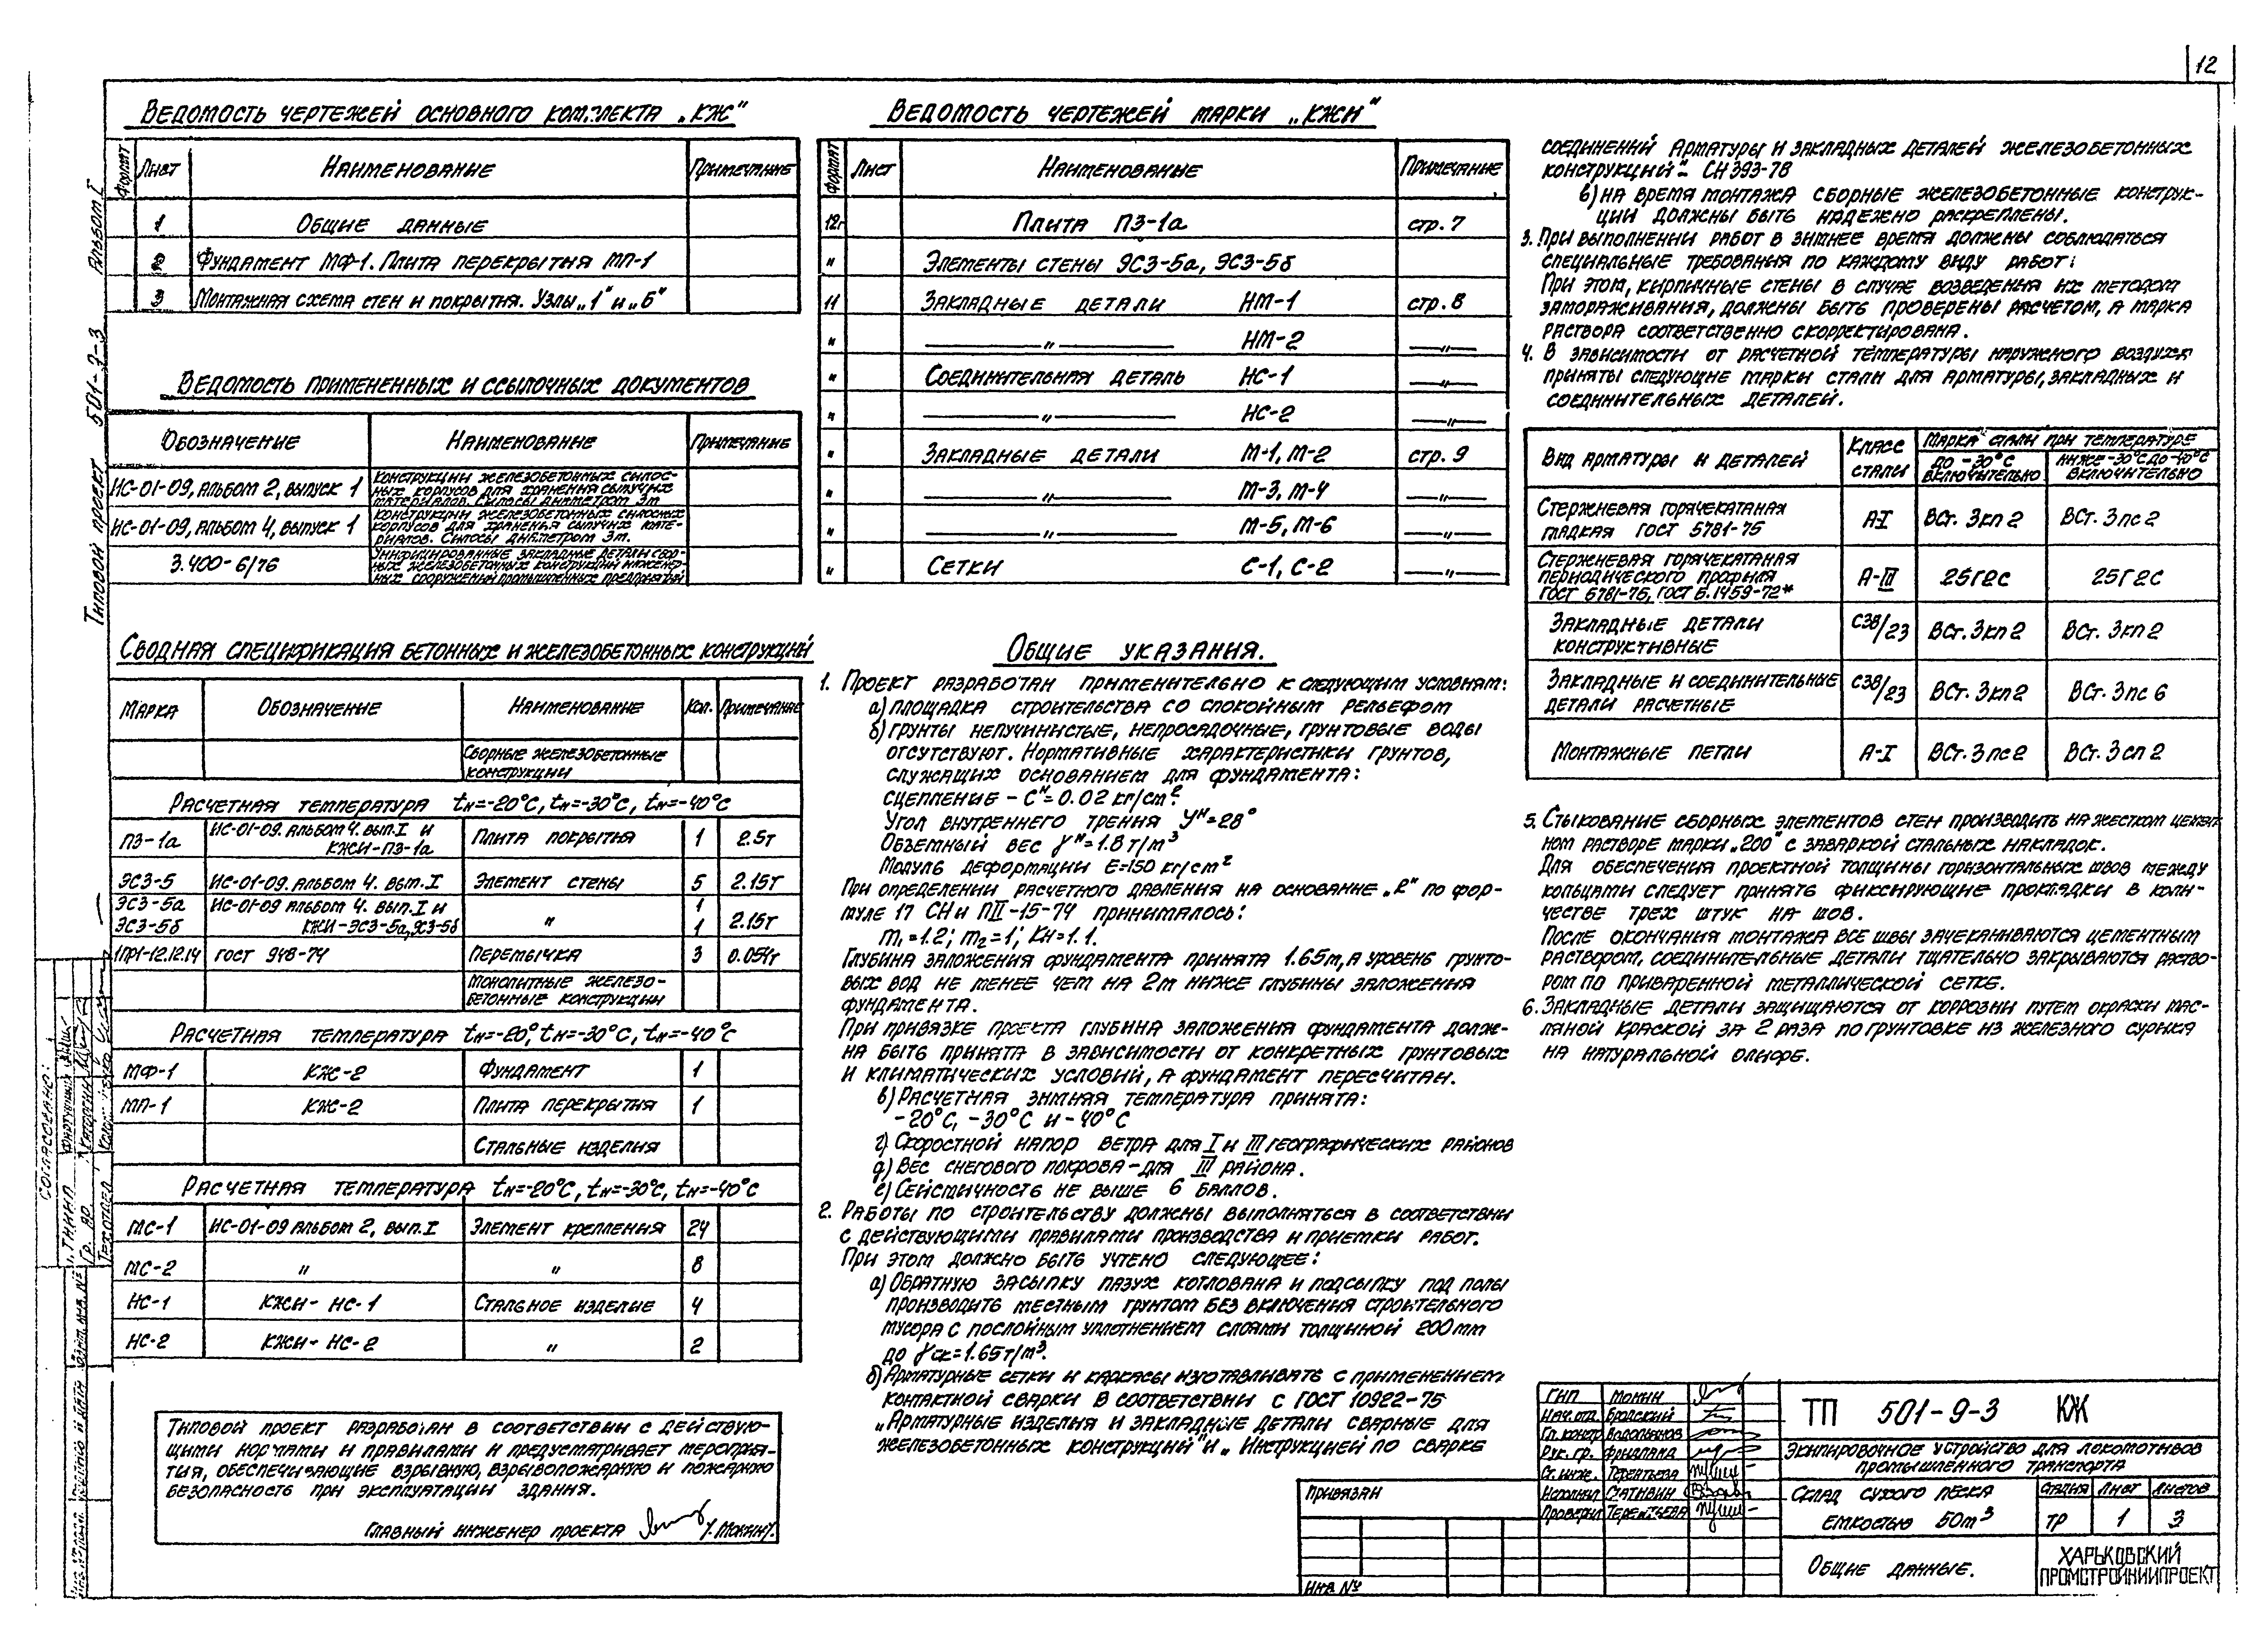 12
Ведомость чертежей основного комплекта „КЖ"
Формат Лист Наименование Примечание
1 Общие данные
2 Фундамент МФ-1. Плита перекрытия МП-1
3 Монтажная схема стен и покрытия. Узлы „1" и „Б"
Ведомость примененных и ссылочных документов
Обозначение Наименование Примечание
ИС-01-09, альбом 2, выпуск 1 Конструкции железобетонных силос-
ных корпусов для хранения сыпучих
материалов. Силосы диаметром 3м
ИС-01-09, альбом 4, выпуск 1 Конструкции железобетонных силосных
корпусов для хранения сыпучих мате-
риалов. Силосы диаметром 3м.
3.400-6/76 Унифицированные закладные детали сбор-
ных железобетонных конструкций инженер-
ных сооружений промышленных предприятий
Сводная спецификация бетонных и железобетонных конструкций
Марка Обозначение Наименование Кол. Примечание
Сборные железобетонные
конструкции
Расчетная температура tн=-20°С, tн=-30°С, tн=-40°С
ПЗ-1а ИС-01-09. Альбом 4. вып.I и
КЖИ-ПЗ-1а Плита покрытия 1 2.5т
ЭСЗ-5 ИС-01-09. Альбом 4. вып.I Элемент стены 5 2.15т
ЭСЗ-5а ИС-01-09 Альбом 4. вып.I и 1
ЭСЗ-5б КЖИ-ЭСЗ-5а, ЭСЗ-5б " 1 2.15т
1ПР1-12.12.14 ГОСТ 948-74 Перемычка 3 0.054т
Монолитные железо-
бетонные конструкции
Расчетная температура tн=-20°, tн=-30°С, tн=-40°С
МФ-1 КЖ-2 Фундамент 1
МП-1 КЖ-2 Плита перекрытия 1
Стальные изделия
Расчетная температура tн=-20°С, tн=-30°С, tн=-40°С
МС-1 ИС-01-09 Альбом 2, вып.I Элемент крепления 24
МС-2 " " 8
НС-1 КЖИ- НС-1 Стальное изделие 4
НС-2 КЖИ- НС-2 " 2
Типовой проект разработан в соответствии с действую-
щими нормами и правилами и предусматривает мероприя-
тия, обеспечивающие взрывную, взрывопожарную и пожарную
безопасность при эксплуатации здания.
Главный инженер проекта /. Монин/.
Ведомость чертежей марки „КЖИ"
Формат Лист Наименование Примечание
12г Плита ПЗ-1а стр. 7
" Элементы стены ЭСЗ-5а, ЭСЗ-5б
11 Закладные детали НМ-1 стр. 8
" —"— НМ-2 —"—
" Соединительная деталь НС-1 —"—
" —"— НС-2 —"—
" Закладные детали М-1, М-2 стр. 9
" —"— М-3, М-4 —"—
" —"— М-5, М-6 —"—
" Сетки С-1, С-2 —"—
Общие указания.
1. Проект разработан применительно к следующим условиям:
а) площадка строительства со спокойным рельефом
б) грунты непучинистые, непросадочные, грунтовые воды
отсутствуют. Нормативные характеристики грунтов,
служащих основанием для фундамента:
сцепление - Сн=0.02 кг/см²
Угол внутреннего трения Ун=28°
Объемный вес γн=1.8 т/м³
Модуль деформации Е=150 кг/см²
При определении расчетного давления на основание „R" по фор-
муле 17 СН и ПII-15-74 принималось:
m₁=1.2; m₂=1; Кн=1.1.
Глубина заложения фундамента принята 1.65м, а уровень грунто-
вых вод не менее чем на 2м ниже глубины заложения
фундамента.
При привязке проекта глубина заложения фундамента долж-
на быть принята в зависимости от конкретных грунтовых
и климатических условий, а фундамент пересчитан.
в) Расчетная зимняя температура принята:
-20°С, -30°С и -40°С
г) Скоростной напор ветра для I и III географических районов
д) Вес снегового покрова-для III района.
е) Сейсмичность не выше 6 баллов.
2. Работы по строительству должны выполняться в соответствии
с действующими правилами производства и приемки работ.
При этом должно быть учтено следующее:
а) Обратную засыпку пазух котлована и подсыпку под полы
производить местным грунтом без включения строительного
мусора с послойным уплотнением слоями толщиной 200мм
до γск=1.65т/м³.
б) Арматурные сетки и каркасы изготавливать с применением
контактной сварки в соответствии с ГОСТ 10922-75
„Арматурные изделия и закладные детали сварные для
железобетонных конструкций" и „Инструкцией по сварке
соединений арматуры и закладных деталей железобетонных
конструкций"- СН 393-78
в) на время монтажа сборные железобетонные конструк-
ции должны быть надежно раскреплены.
3. При выполнении работ в зимнее время должны соблюдаться
специальные требования по каждому виду работ:
При этом, кирпичные стены в случае возведения их методом
замораживания, должны быть проверены расчетом, а марка
раствора соответственно скорректирована.
4. В зависимости от расчетной температуры наружного воздуха
приняты следующие марки стали для арматуры, закладных и
соединительных деталей.
Вид арматуры и деталей Класс стали Марка стали при температуре
до -30°С включительно ниже-30°С до-40°С включительно
Стержневая горячекатаная
гладкая ГОСТ 5781-75 А-I ВСт. 3кп 2 ВСт. 3пс 2
Стержневая горячекатаная
периодического профиля
ГОСТ 5781-75, ГОСТ 5.1459-72* А-III 25Г2С 25Г2С
Закладные детали
конструктивные С38/23 ВСт. 3кп 2 ВСт. 3кп 2
Закладные и соединительные
детали расчетные С38/23 ВСт. 3кп 2 ВСт. 3пс 6
Монтажные петли А-I ВСт. 3пс 2 ВСт. 3сп 2
5. Стыкование сборных элементов стен производить на жестком цемент-
ном растворе марки „200" с заваркой стальных накладок.
Для обеспечения проектной толщины горизонтальных швов между
кольцами следует принять фиксирующие прокладки в коли-
честве трех штук на шов.
После окончания монтажа все швы зачеканиваются цементным
раствором, соединительные детали тщательно закрываются раство-
ром по приваренной металлической сетке.
6. Закладные детали защищаются от коррозии путем окраски мас-
ляной краской за 2 раза по грунтовке из железного сурика
на натуральной олифе.
ГИП Монин
Нач. отд. Бродский
Гл. констр Водопьянов
Рук. гр. Фридлянд
Ст. инж. Терентьева
Исполнил Статывин
Проверил Терентьева
ТП 501-9-3 КЖ
Экипировочное устройство для локомотивов
промышленного транспорта
Склад сухого песка
емкостью 50м³
Стадия Лист Листов
ТР 1 3
Общие данные.
ХАРЬКОВСКИЙ
ПРОМСТРОЙНИИПРОЕКТ
Привязан
Инв №
Типовой проект 501-9-3 Альбом I
Согласовано: